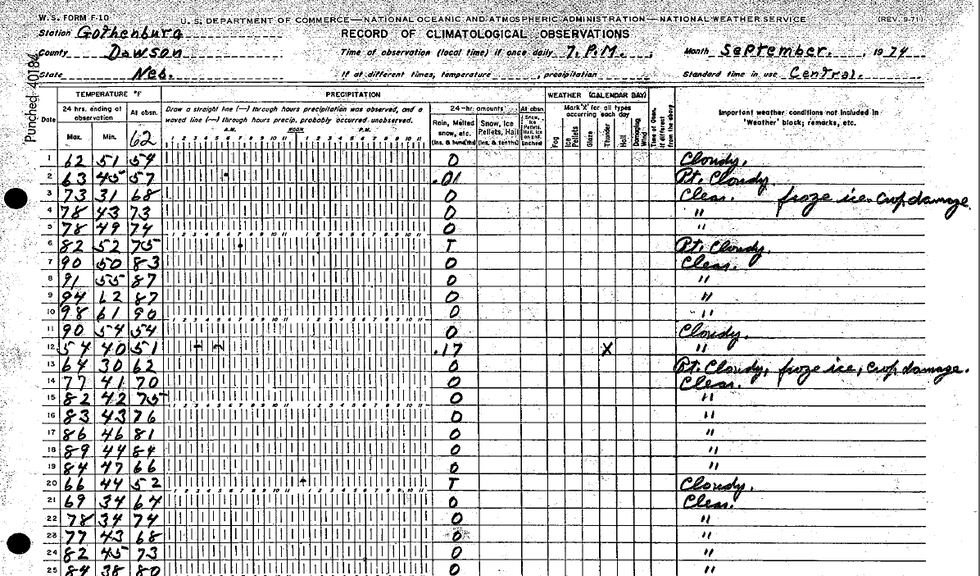 W. S. FORM F-10 U. S. DEPARTMENT OF COMMERCE—NATIONAL OCEANIC AND ATMOSPHERIC ADMINISTRATION—NATIONAL WEATHER SERVICE (REV. 9-71)
Station Gothenburg RECORD OF CLIMATOLOGICAL OBSERVATIONS
County Dawson Time of observation (local time) if once daily 7. P.M. Month September. , 1974
State Neb. If at different times, temperature , precipitation Standard time in use Central.
Punched 40184
TEMPERATURE °F PRECIPITATION WEATHER (CALENDAR DAY)
Date 24 hrs. ending at observation Max. Min. At obsn. 62
Draw a straight line (—) through hours precipitation was observed, and a waved line (~) through hours precip. probably occurred unobserved.
A.M. NOON P.M.
24-hr. amounts At obsn.
Rain, Melted snow, etc. (Ins. & hundths) Snow, Ice Pellets, Hail (Ins. & tenths)
Mark 'X' for all types occurring each day
Fog Ice Pellets Glaze Thunder Hail Damaging Wind
Important weather conditions not included in 'Weather' block; remarks, etc.
1 62 51 54 0 Cloudy.
2 63 45 57 .01 Pt. Cloudy
3 73 31 68 0 Clear. froze ice. Crop damage.
4 78 43 73 0 "
5 78 49 74 0 "
6 82 52 75 T Pt. Cloudy.
7 90 50 83 0 Clear.
8 91 55 87 0 "
9 94 62 87 0 "
10 98 61 90 0 "
11 90 54 54 0 Cloudy.
12 54 40 51 .17 X "
13 64 30 62 0 Pt. Cloudy, froze ice, crop damage.
14 77 41 70 0 Clear.
15 82 42 75 0 "
16 83 43 76 0 "
17 86 46 81 0 "
18 89 44 84 0 "
19 84 47 66 0 "
20 66 44 52 T Cloudy.
21 69 34 64 0 Clear.
22 78 34 74 0 "
23 77 43 68 0 "
24 82 45 73 0 "
25 84 38 80 0 "